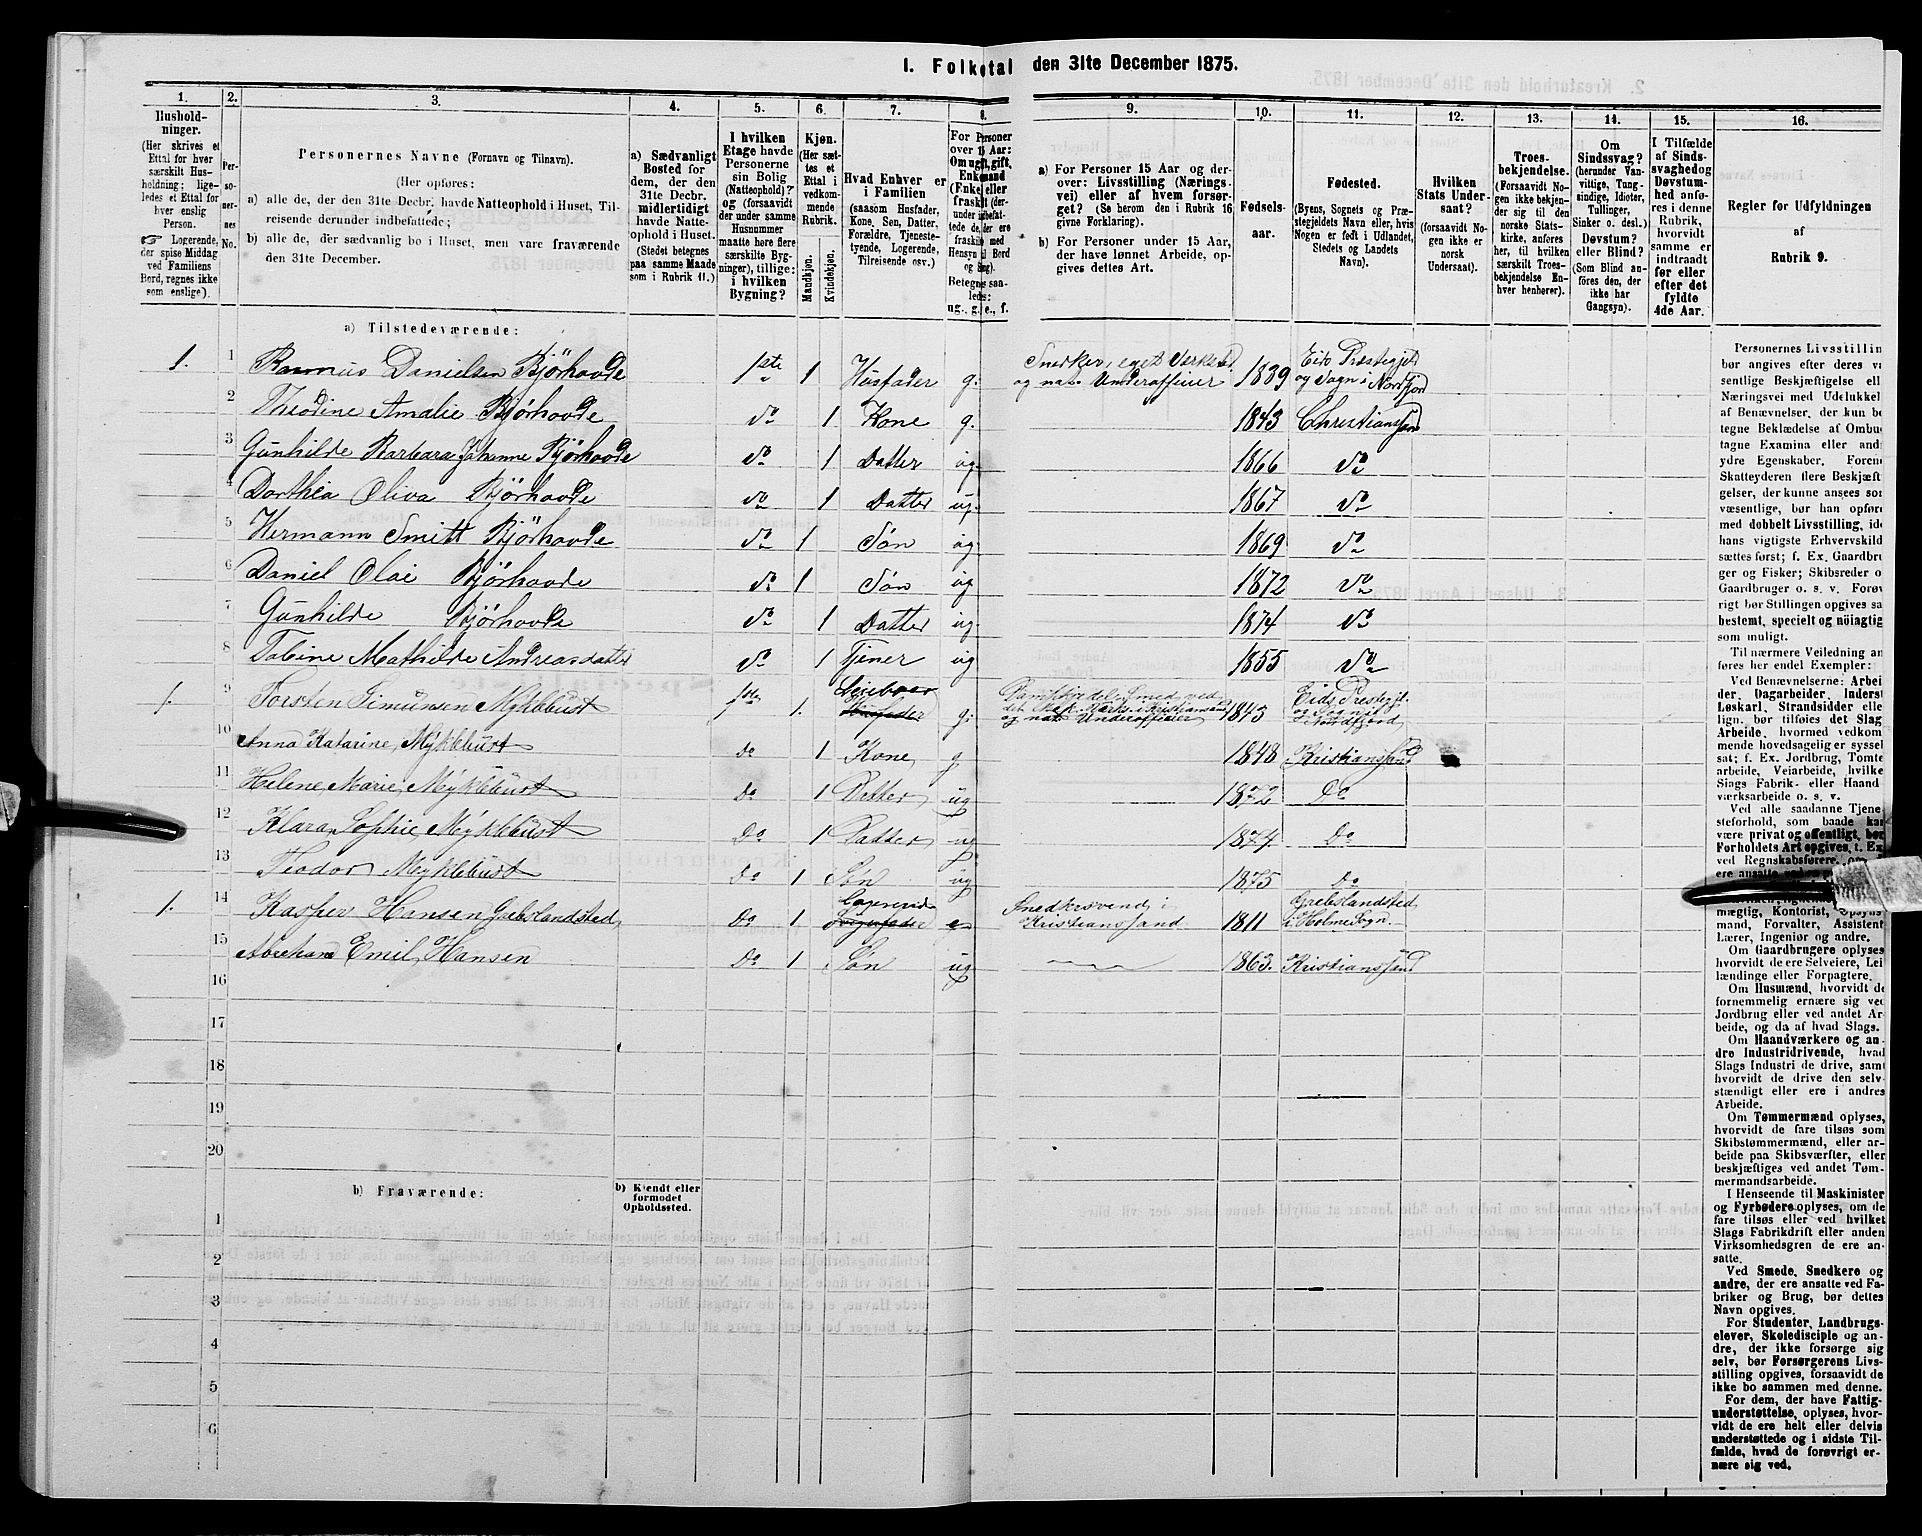 1. Folketal den 31te December 1875.
1. 2. 3. 4. 5. 6. 7. 8. 9. 10. 11. 12. 13. 14. 15. 16.
Hushold-
ninger.
(Her skrives et
Ettal for hver
særskilt Hus-
holdning; lige-
ledes et Ettal for
hver enslig
Person.
☞ Logerende,
der spise Middag
ved Familiens
Bord, regnes ikke
som enslige).
Per-
so-
ner-
nes
No.
Personernes Navne (Fornavn og Tilnavn).
(Her opføres:
a) alle de, der den 31te Decbr. havde Natteophold i Huset, Til-
reisende derunder indbefattede;
b) alle de, der sædvanlig bo i Huset, men vare fraværende
den 31te December.
a) Sædvanligt
Bosted for
dem, der den
31te Decbr.
midlertidigt
havde Natte-
ophold i Huset.
(Stedet betegnes
paa samme Maade
som i Rubrik 11.)
I hvilken
Etage havde
Personerne
sin Bolig
(Natteophold)?
og (forsaavidt
der under samme
Husnummer
maatte høre flere
særskilte Byg-
ninger), tillige:
i hvilken
Bygning?
Kjøn.
(Her sæt-
tes et
Ettal i
vedkom-
mende
Rubrik.
Mandkjøn.
Kvindekjøn.
Hvad Enhver er
i Familien
(saasom Husfader,
Kone, Søn, Datter,
Forældre, Tjeneste-
tyende, Logerende,
Tilreisende osv.)
For Personer
over 15 Aar:
Om ugift, gift,
Enkemand
(Enke) eller
fraskilt
Betegnes saa-
ledes:
ug., g., e., f.
a) For Personer 15 Aar og der-
over: Livsstilling (Nærings-
vei) eller af hvem forsør-
get? (Se herom den i Rubrik 16
givne Forklaring).
b) For Personer under 15 Aar,
der have lønnet Arbeide, op-
gives dettes Art.
Fødsels-
aar.
Fødested.
(Byens, Sognets og Præ-
stegjeldets Navn eller, hvis
Nogen er født i Udlandet,
Stedets og Landets
Navn).
Hvilken
Stats Under-
saat?
(forsaavidt No-
gen ikke er
norsk
Undersaat).
Troes-
bekjendelse.
(Forsaavidt No-
gen ikke bekjen-
der sig til den
norske Stats-
kirke, anføres
her, til hvilken
særskilt Troes-
bekjendelse En-
hver henhører).
Om
Sindssvag?
(herunder Van-
vittige, Tung-
sindige, Idioter,
Tullinger,
Sinker o. desl.)
Døvstum?
eller Blind?
(Som Blind an-
føres den, der
ikke har
Gangsyn).
I Tilfælde
af Sinds-
svaghed og
Døvstum-
hed anfø-
res i denne
Rubrik,
hvorvidt
samme er
indtraadt
før eller
efter det
fyldte
4de Aar.
Regler for Udfyldningen
af
Rubrik 9.
a) Tilstedeværende:
1. 1 Rasmus Danielsen Bjørhovde 1ste 1 Husfader g. Snedker, eget Værksted og nat. Underofficier 1839 Eids Præstegjeld og Sogn i Nordfjord
2 Theodine Amalie Bjørhovde do 1 Kone g. 1843 Christianssand
3 Gunhilde Barbara Johanne Bjørhovde do 1 Datter ug. 1866 do
4 Dorthea Oliva Bjørhovde do 1 Datter ug. 1867 do
5 Hermann Smitt Bjørhovde do 1 Søn ug 1869 do
6 Daniel Olai Bjørhovde do 1 Søn ug 1872 do
7 Gunhilde Bjørhovde do 1 Datter ug. 1874 do
8 Tobine Mathilde Andreasdatter do 1 Tjener ug 1855 do
1. 9 Torsten Simunsen Myklebust 1ste 1. Leieboer Husfader g. Smed ved det Mek. Værks. i Kristianssand og nat. Underofficier 1845 Eids Prestegjl. og Sogn i Nordfjord
10 Anna Katarine Myklebust Do 1 Kone g. 1848 Kristianssand
11 Helene Marie Myklebust Do 1 Datter ug 1872 Do
12 Klara Sophie Myklebust Do 1 Datter ug 1874 Do
13 Teodor Myklebust Do 1 Søn ug 1875 Do
1. 14 Kasper Hansen Grebslandsted Do 1 Logerende e Snedkersvend i Kristianssand. 1811 Grebslandsted i Holme Sogn.
15 Abreham Emil Hansen Do 1 Søn ug 1863. Kristianssand
16
17
18
19
20
b) Fraværende:
b) Kjendt eller
formodet
Opholdssted.
1
2
3
4
5
6
Personernes Livsstilling
bør angives efter deres væ
sentlige Beskjæftigelse ell
Næringsvei med Udelukkel
af Benævnelser, der kun be
tegne Beklædelse af Ombu
tagne Examina eller andr
ydre Egenskaber. Foren
Skatteyderen flere Beskjæft
gelser, der kunne ansees som
væsentlige, bør han opføre
med dobbelt Livsstilling, ide
hans vigtigste Erhvervskild
sættes først; f. Ex. Gaardbru
ger og Fisker; Skibsreder o
Gaardbruger o. s. v. Forøv
rigt bør Stillingen opgives saa
bestemt, specielt og nøiagtig
som muligt.
Til nærmere Veiledning an
føres her endel Exempler:
Ved Benævnelserne: Arbei
der, Dagarbeider, Inderst
Løskarl, Strandsidder elle
lign. bør tilføies det Slag
Arbeide, hvormed vedkom
mende hovedsagelig er syssel
sat; f. Ex. Jordbrug, Tomte
arbeide, Veiarbeide, hvilke
Slags Fabrik- eller Haand
værksarbeide o. s. v.
Ved alle saadanne Tjene
steforhold, som baade kan
være privat og offentligt, bør
Forholdets Art opgives, t. Ex
ved Regnskabsførere,
mægtig, Kontorist, Opsyns
mand, Forvalter, Assistent
Lærer, Ingeniør og andre.
Om Gaardbrugere oplyses,
hvorvidt de ere Selveiere, Lei
lændinge eller Forpagtere.
Om Husmænd, hvorvidt de
fornemmelig ernære sig ved
Jordbrug eller ved andet Ar
beide, og da af hvad Slags.
Om Haandværkere og an
dre Industridrivende, hvad
Slags Industri de drive, samt
hvorvidt de drive den selv-
stændigt eller ere i andres
Arbeide.
Om Tømmermænd oplyses,
hvorvidt de fare tilsøs som
Skibstømmermænd, eller ar-
beide paa Skibsværfter, eller
beskjæftiges ved andet Tøm-
mermandsarbeide.
I Henseende til Maskinister
og Fyrbødere oplyses, om de
fare tilsøs eller ved hvilket
Slags Fabrikdrift eller anden
Virksomhedsgren de ere an-
satte.
Ved Smede, Snedkere og
andre, der ere ansatte ved Fa-
briker og Brug, bør dettes
Navn opgives.
For Studenter, Landbrugs-
elever, Skoledisciple og an-
dre, der ikke forsørge sig
selv, bør Forsørgerens Livs-
stilling opgives, forsaavidt de
ikke bo sammen med denne.
For dem, der have Fattig-
understøttelse, oplyses, hvor-
vidt de ere helt eller delvis
understøttede og i sidste Til-
fælde, hvad de forøvrigt er-
nære sig ved.